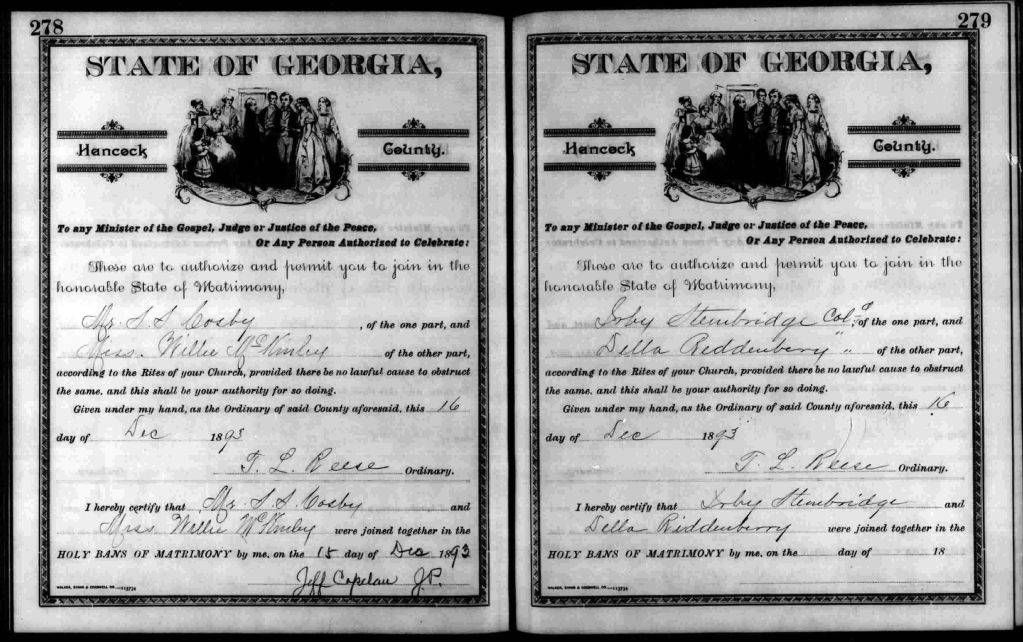 278
STATE OF GEORGIA,
Hancock County.
To any Minister of the Gospel, Judge or Justice of the Peace,
Or Any Person Authorized to Celebrate:
These are to authorize and permit you to join in the
honorable State of Matrimony,
Mr. S. S. Cosby, of the one part, and
Miss. Willie McKinley of the other part,
according to the Rites of your Church, provided there be no lawful cause to obstruct
the same, and this shall be your authority for so doing.
Given under my hand, as the Ordinary of said County aforesaid, this 16
day of Dec 1893
T. L. Reese Ordinary.
I hereby certify that Mr S. S. Cosby and
Miss Willie McKinley were joined together in the
HOLY BANS OF MATRIMONY by me, on the 18 day of Dec 1893
Jeff Copelan J.P.
WALKER, EVANS & COGSWELL CO.
279
STATE OF GEORGIA,
Hancock County.
To any Minister of the Gospel, Judge or Justice of the Peace,
Or Any Person Authorized to Celebrate:
These are to authorize and permit you to join in the
honorable State of Matrimony,
Irby Stembridge Cold, of the one part, and
Della Reddenberry " of the other part,
according to the Rites of your Church, provided there be no lawful cause to obstruct
the same, and this shall be your authority for so doing.
Given under my hand, as the Ordinary of said County aforesaid, this 16
day of Dec 1893
T. L. Reese Ordinary.
I hereby certify that Irby Stembridge and
Della Riddenberry were joined together in the
HOLY BANS OF MATRIMONY by me, on the day of 18
WALKER, EVANS & COGSWELL CO.